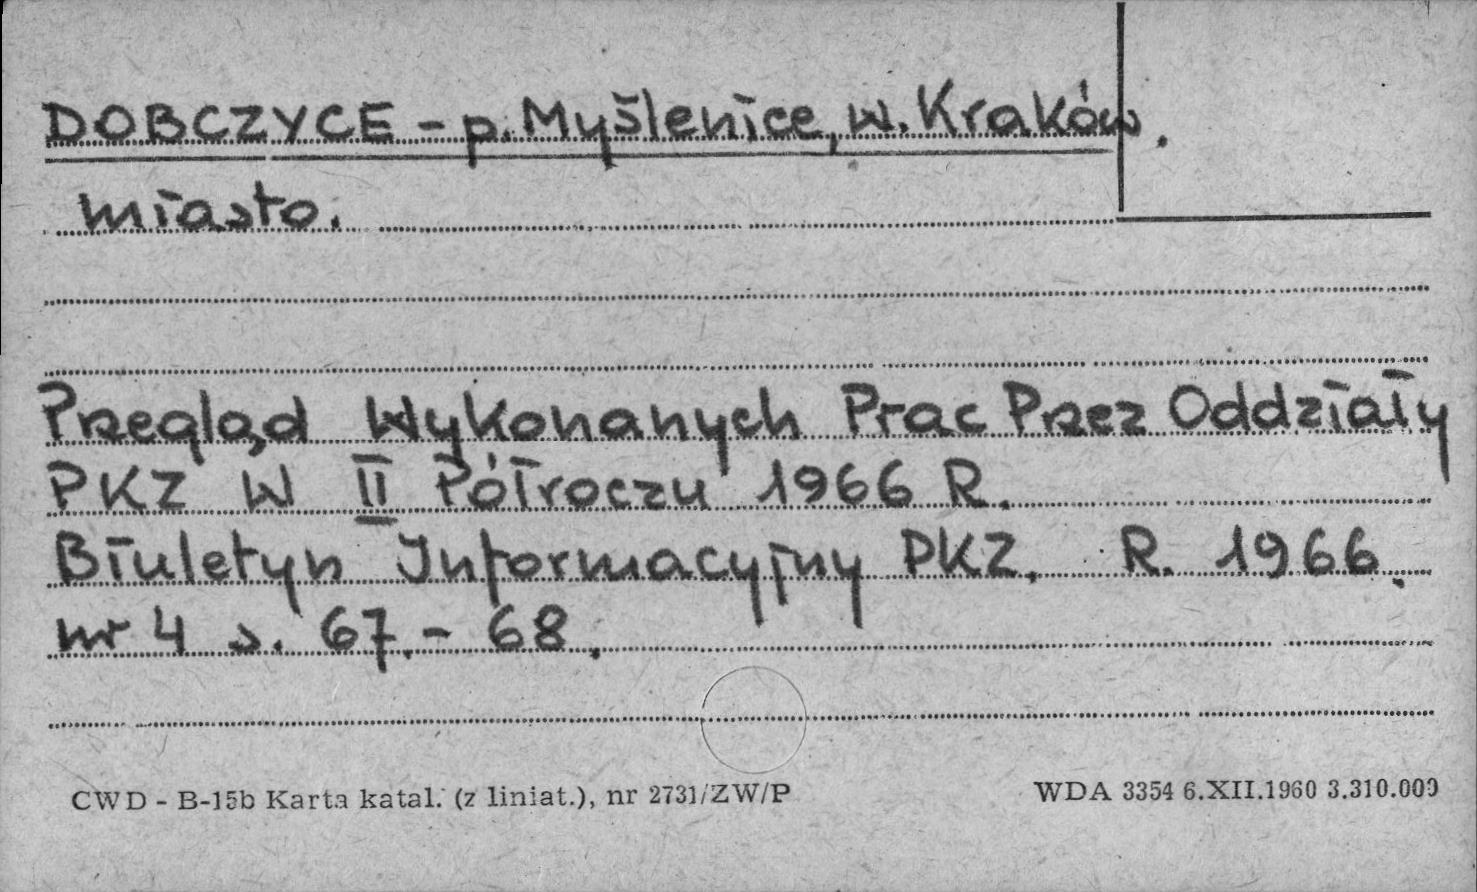 DOBCZYCE - p. Myślenice, w. Kraków.
miasto.
Przegląd Wykonanych Prac Przez Oddziały
PKZ W II Półroczu 1966 R.
Biuletyn Informacyjny PKZ. R. 1966.
nr 4 s. 67. - 68.
CWD - B-15b Karta katal. (z liniat.), nr 2731/ZW/P
WDA 3354 6.XII.1960 3.310.000